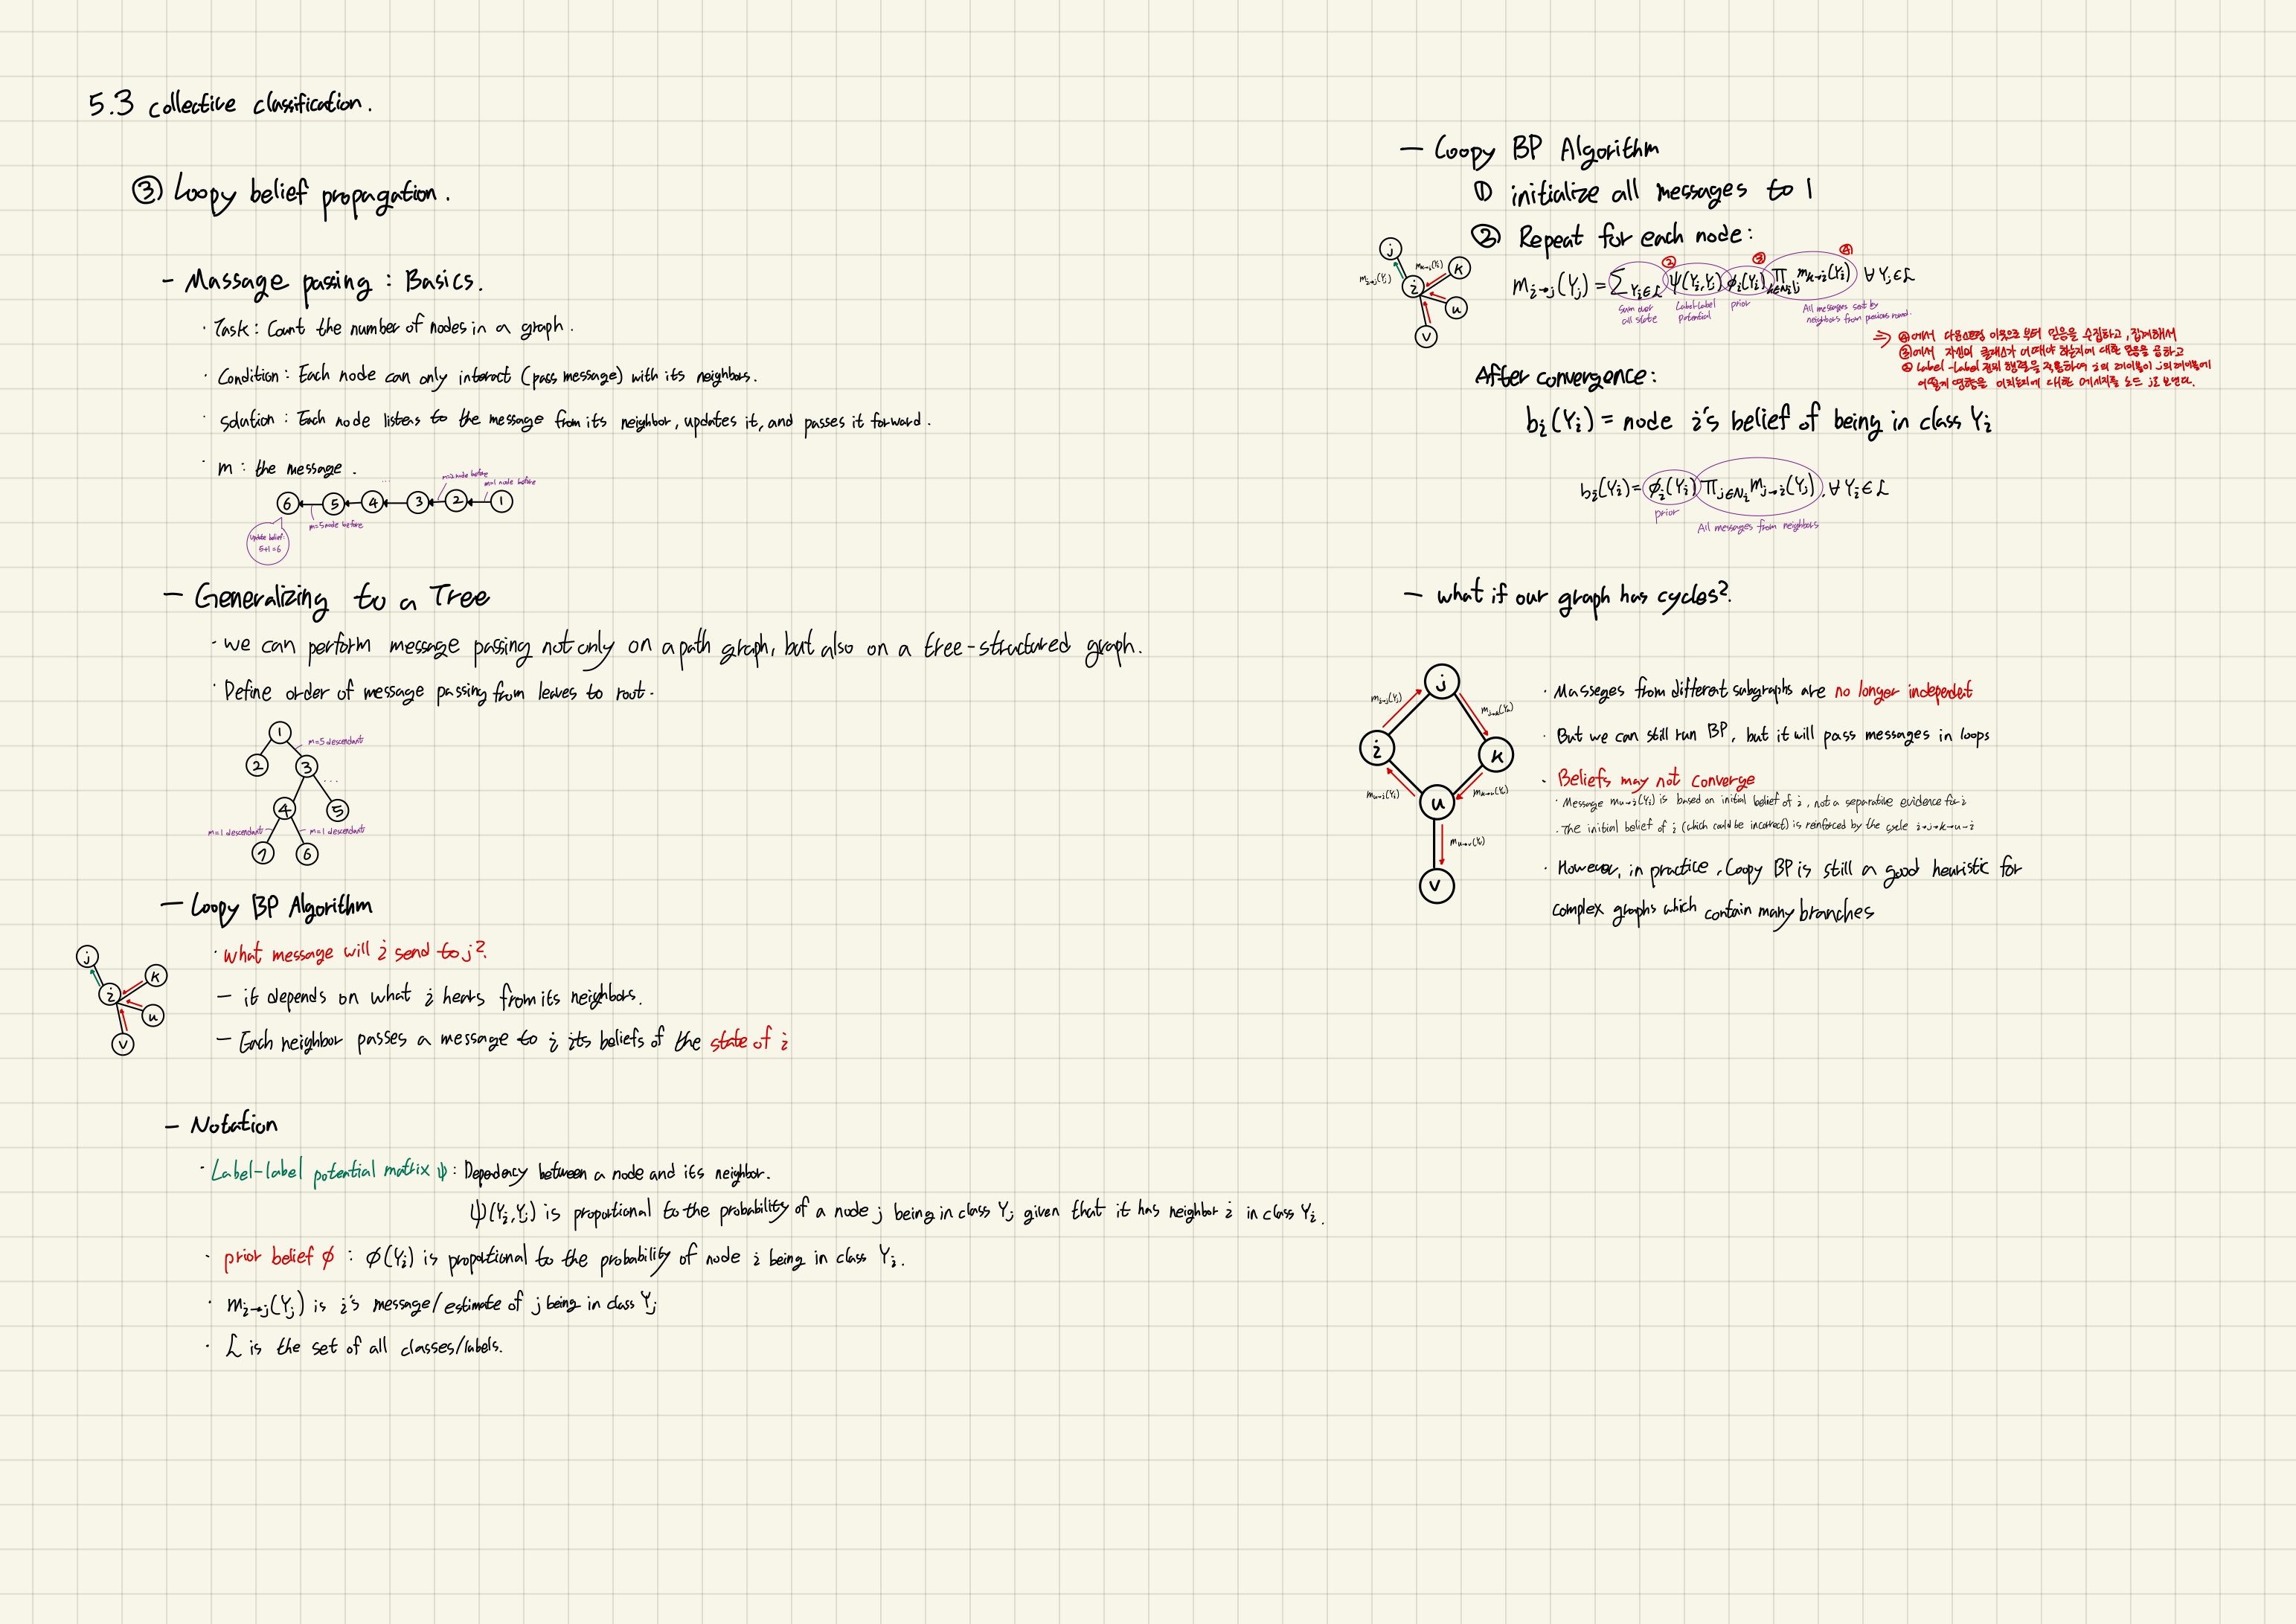 5.3 collective classification.
③ Loopy belief propagation.
- Massage passing : Basics.
· Task : Count the number of nodes in a graph.
· Condition : Each node can only interact (pass message) with its neighbors.
· solution : Each node listens to the message from its neighbor, updates it, and passes it forward.
· m : the message .
m=2 node before
m=1 node before
6 5 4 3 2 1
m=5 node before
Update belief:
5+1=6
- Generalizing to a Tree
· we can perform message passing not only on a path graph, but also on a tree-structured graph.
· Define order of message passing from leaves to root.
1
m=5 descendant
2 3
...
4 5
m=1 descendant
m=1 descendant
7 6
- Loopy BP Algorithm
j
k
i
u
v
· what message will i send to j?
- it depends on what i hears from its neighbors.
- Each neighbor passes a message to i its beliefs of the state of i
- Notation
· Label-label potential matrix ψ : Dependency between a node and its neighbor.
ψ(Yi,Yj) is proportional to the probability of a node j being in class Yj given that it has neighbor i in class Yi.
· prior belief ϕ : ϕ(Yi) is proportional to the probability of node i being in class Yi.
· mi→j(Yj) is i's message/estimate of j being in class Yj
· L is the set of all classes/labels.
- Loopy BP Algorithm
① initialize all messages to 1
② Repeat for each node:
j
k
i
u
v
mi→j(Yj)
mk→i(Yi)
② ③ ④
mi→j(Yj) = ∑Yi∈L ψ(Yi,Yj) ϕi(Yi) ∏k∈Ni\j mk→i(Yi) ∀Yj∈L
Sum over all state
Label-Label Potential
prior
All messages sent by neighbors from previous round.
⇒ ④에서 다운스트림 이웃으로 부터 믿음을 수집하고, 집계해서
③에서 자신의 클래스가 어때야 하는지에 대한 믿음을 곱하고
② Label-Label 전위 행렬을 적용하여 i의 레이블이 j의 레이블에
어떻게 영향을 미치는지에 대한 메시지를 노드 j로 보낸다.
After convergence:
bi(Yi) = node i's belief of being in class Yi
bi(Yi) = ϕi(Yi) ∏j∈Ni mj→i(Yj), ∀Yi∈L
prior
All messages from neighbors
- what if our graph has cycles?
j
mi→j(Yj)
mj→k(Yk)
i
k
mu→i(Yi)
mk→u(Yu)
u
mu→v(Yv)
v
· Masseges from different subgraphs are no longer independet
· But we can still run BP, but it will pass messages in loops
· Beliefs may not converge
· Message mu→i(Yi) is based on initial belief of i, not a separative evidence for i
· The initial belief of i (which could be incorrect) is reinforced by the cycle i→j→k→u→i
· However, in practice, Loopy BP is still a good heuristic for
complex graphs which contain many branches